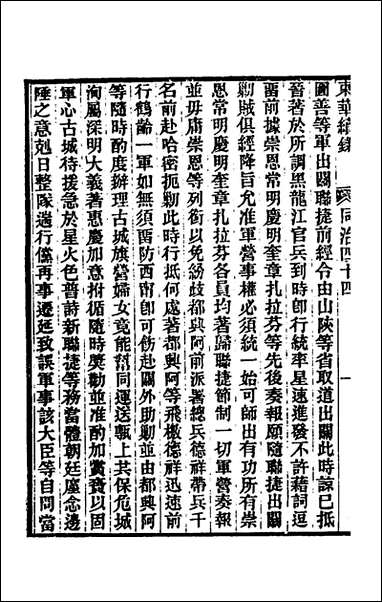 東華續錄　同治四十四　一
圖善等軍出關聯捷前經合由山陝等省取道出關此時該已抵
晉著於所調黑龍江官兵到時卽行統率星速進發不許藉詞逗
畱前據崇恩常明慶明奎章扎拉芬等先後奏報願隨聯捷出關
勦賊俱經降旨允准軍營事權必須統一始可師出有功所有崇
恩常明慶明奎章扎拉芬各員均著歸聯捷節制一切軍營奏報
並毋庸崇恩等列銜以免紛歧都興阿前派署總兵德祥帶兵千
名前赴哈密扼勦此時行抵何處著都興阿等飛檄德祥迅速前
行鶴齡一軍如無須畱防西甯卽可飭赴關外助勦並由都興阿
等隨時酌度辦理古城旗營婦女竟能幫同運送甎上共保危城
洵屬深明大義著惠慶加意拊循隨時獎勸並准酌加賞賚以固
軍心古城待援急於星火色普詩新聯捷等務當體朝廷廑念邊
陲之意剋日整隊遄行儻再事遷延致誤軍事該大臣等自問當